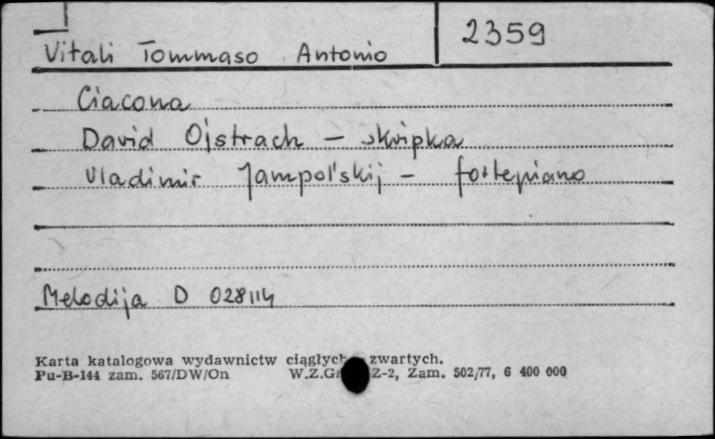 2359
Vitali Tommaso Antonio
Ciacona
David Ojstrach - skripka
Vladimir Jampol'skij - fortepiano
Melodija D 028114
Karta katalogowa wydawnictw ciągłych zwartych.
Pu-B-144 zam. 567/DW/On W.Z.G Z-2, Zam. 502/77, 6 400 000